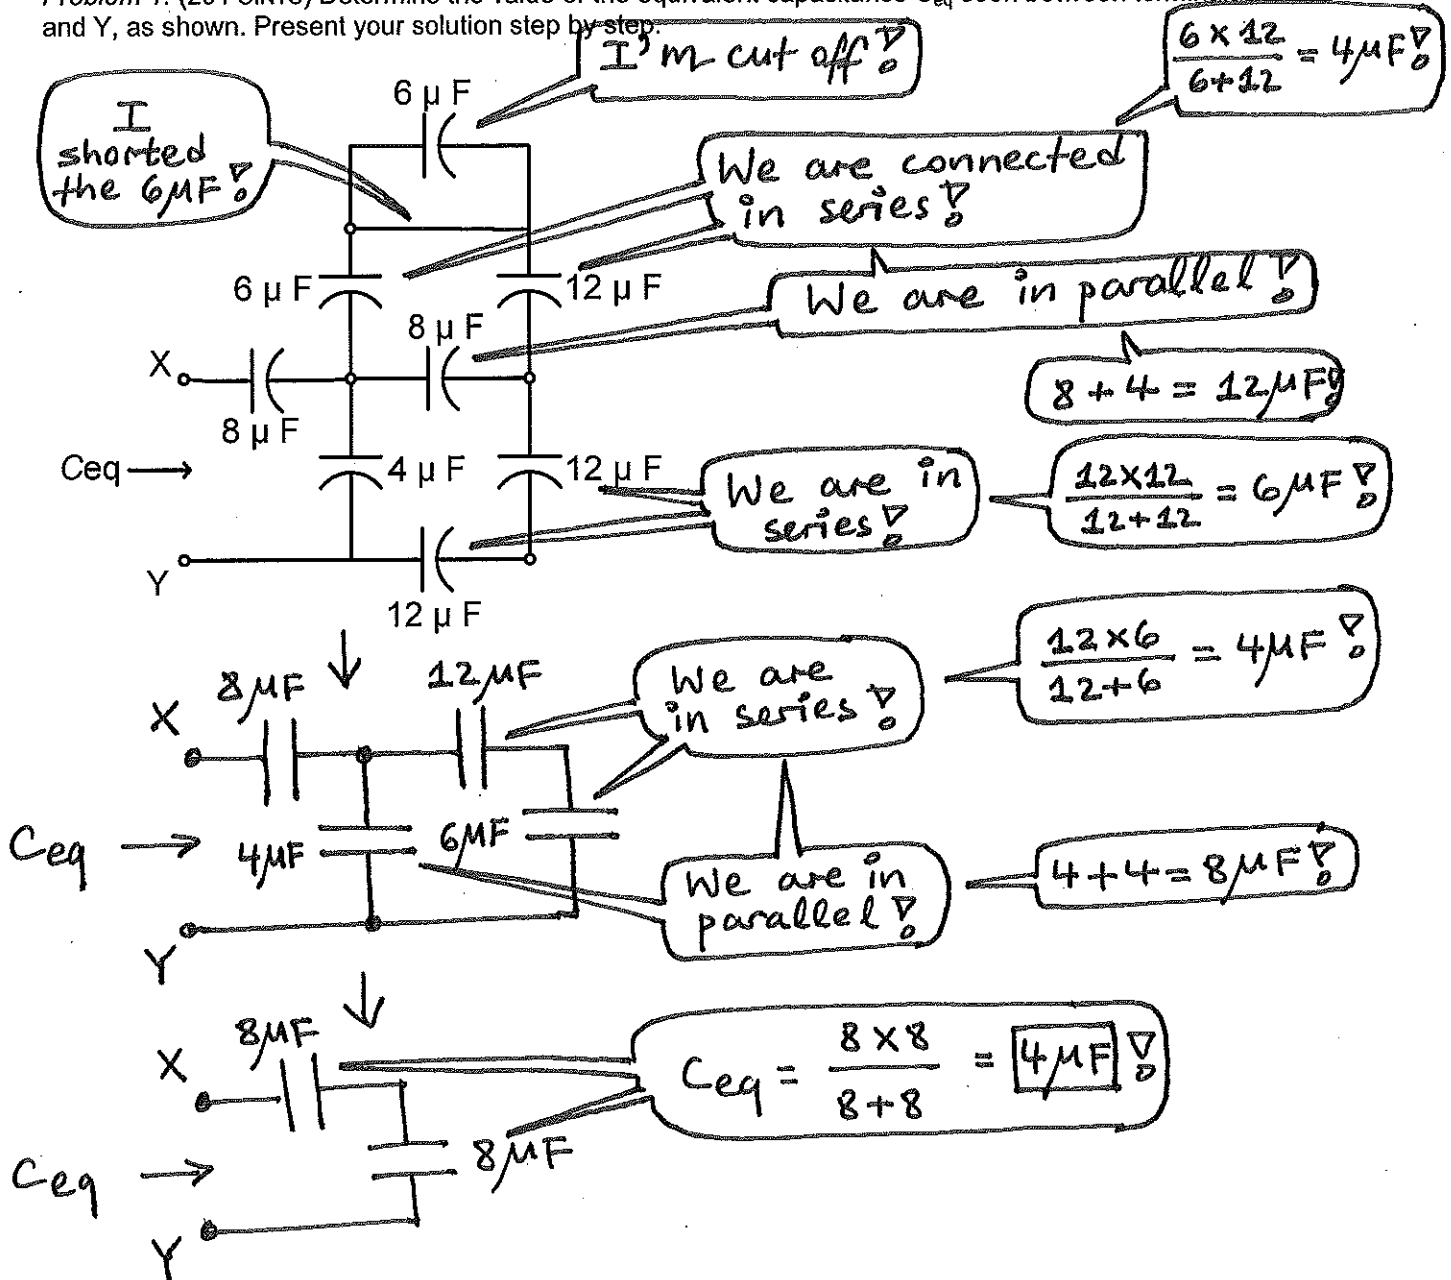 and Y, as shown. Present your solution step by step.
I'm cut off!
6 x 12
6+12
= 4μF!
I
shorted
the 6μF!
6 μ F
We are connected
in series!
6 μ F
12 μ F
We are in parallel!
8 μ F
X
8 + 4 = 12μF!
8 μ F
Ceq
4 μ F
12 μ F
We are in
series!
12x12
12+12
= 6μF!
Y
12 μ F
8μF
12μF
We are
in series!
12x6
12+6
= 4μF!
X
Ceq
4μF
6μF
We are in
parallel!
4+4=8μF!
Y
8μF
X
Ceq = 8 x 8
8+8
= 4μF!
Ceq
8μF
Y